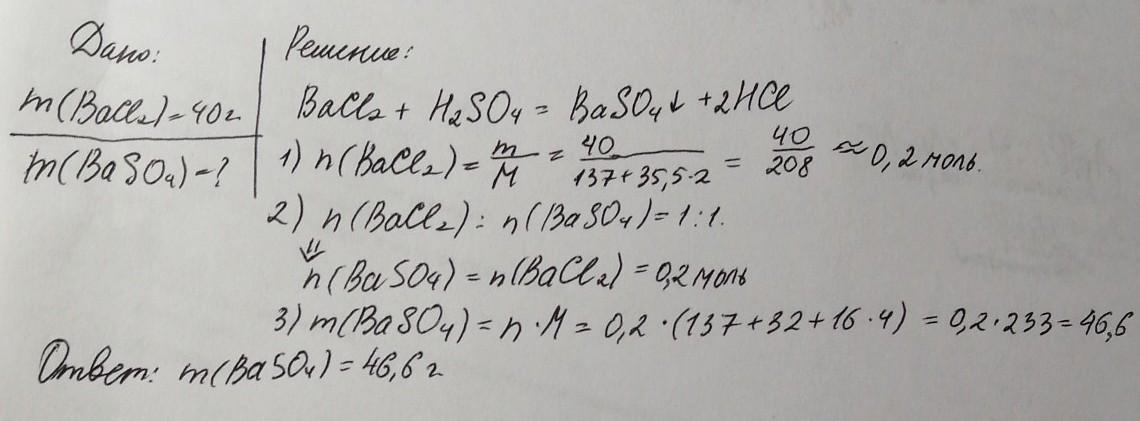 Дано:
m(BaCl₂)=40г
m(BaSO₄)-?
Решение:
BaCl₂ + H₂SO₄ = BaSO₄↓ +2HCl
1) n(BaCl₂) = m/M = 40/(137+35,5·2) = 40/208 ≈ 0,2 моль.
2) n(BaCl₂) : n(BaSO₄) = 1:1.
⇓
n(BaSO₄) = n(BaCl₂) = 0,2 моль
3) m(BaSO₄) = n·M = 0,2·(137+32+16·4) = 0,2·233 = 46,6
Ответ: m(BaSO₄) = 46,6 г